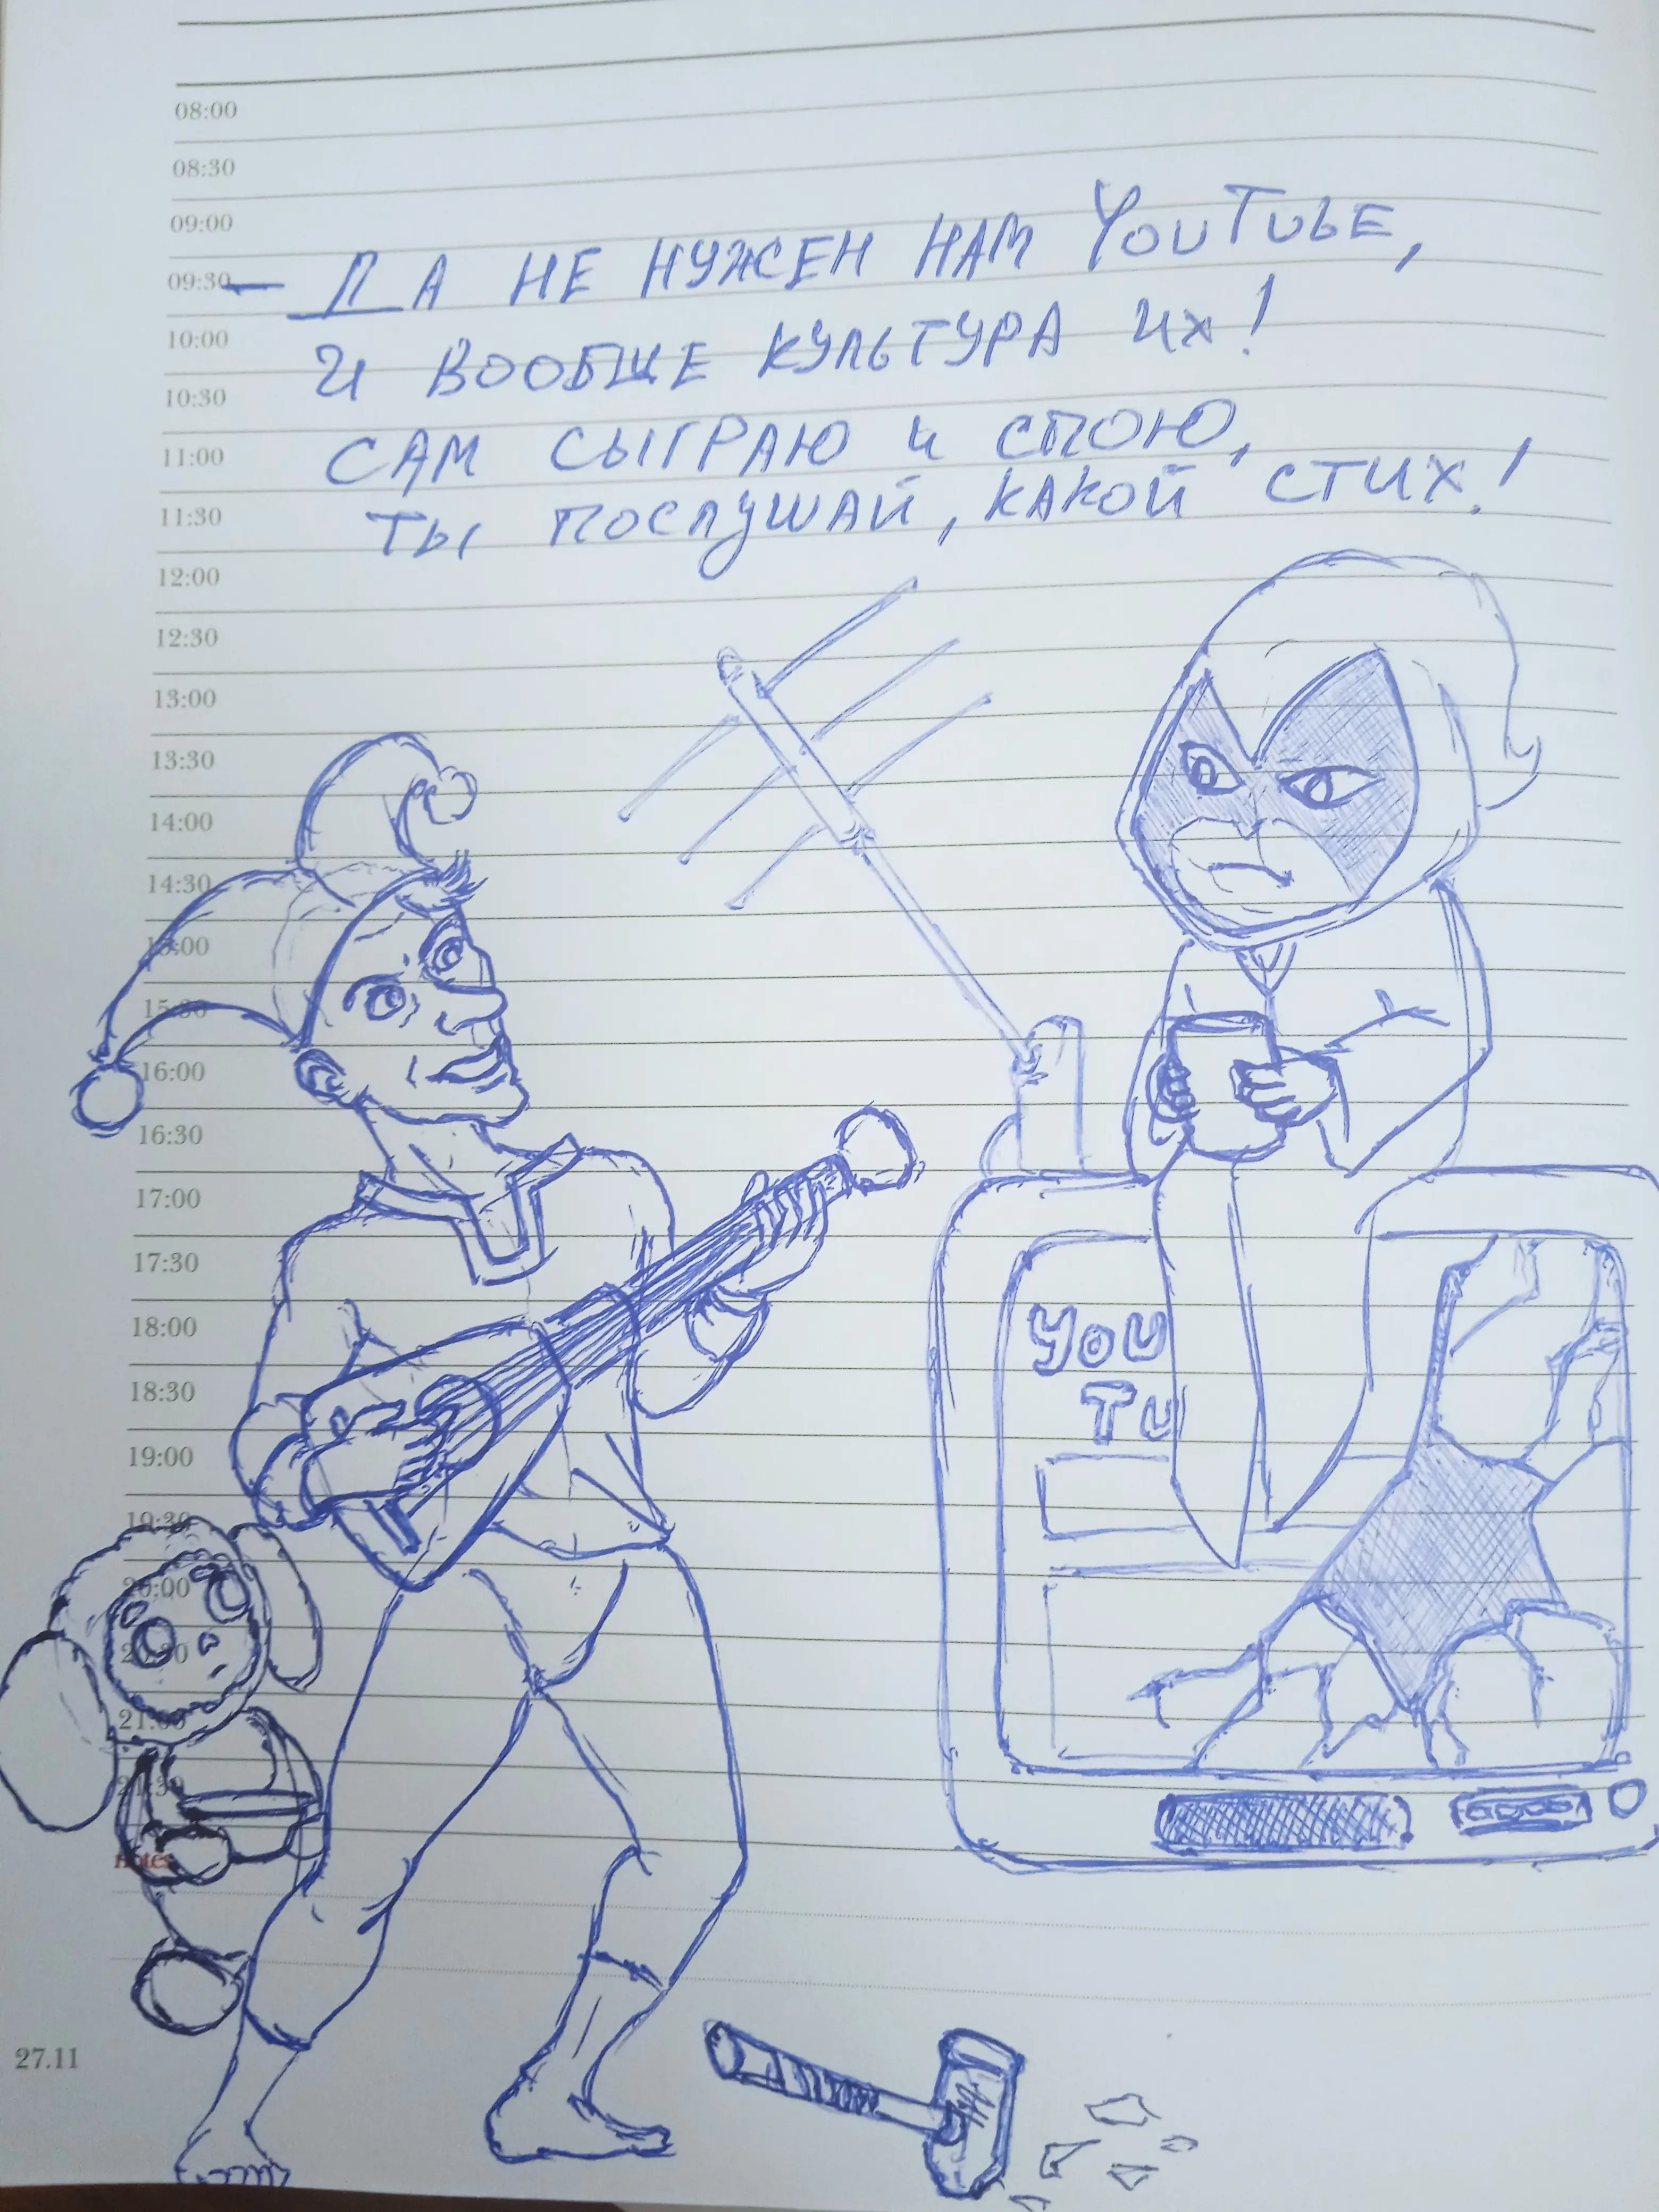 08:00
08:30
09:00
09:30 — ДА НЕ НУЖЕН НАМ YOUTUBE,
10:00
И ВООБЩЕ КУЛЬТУРА ИХ!
10:30
11:00
САМ СЫГРАЮ И СПОЮ,
11:30
ТЫ ПОСЛУШАЙ, КАКОЙ СТИХ!
12:00
12:30
13:00
13:30
14:00
14:30
15:00
15:30
16:00
16:30
17:00
17:30
18:00
YOU
18:30
TU
19:00
19:30
20:00
20:30
21:00
21:30
notes
27.11